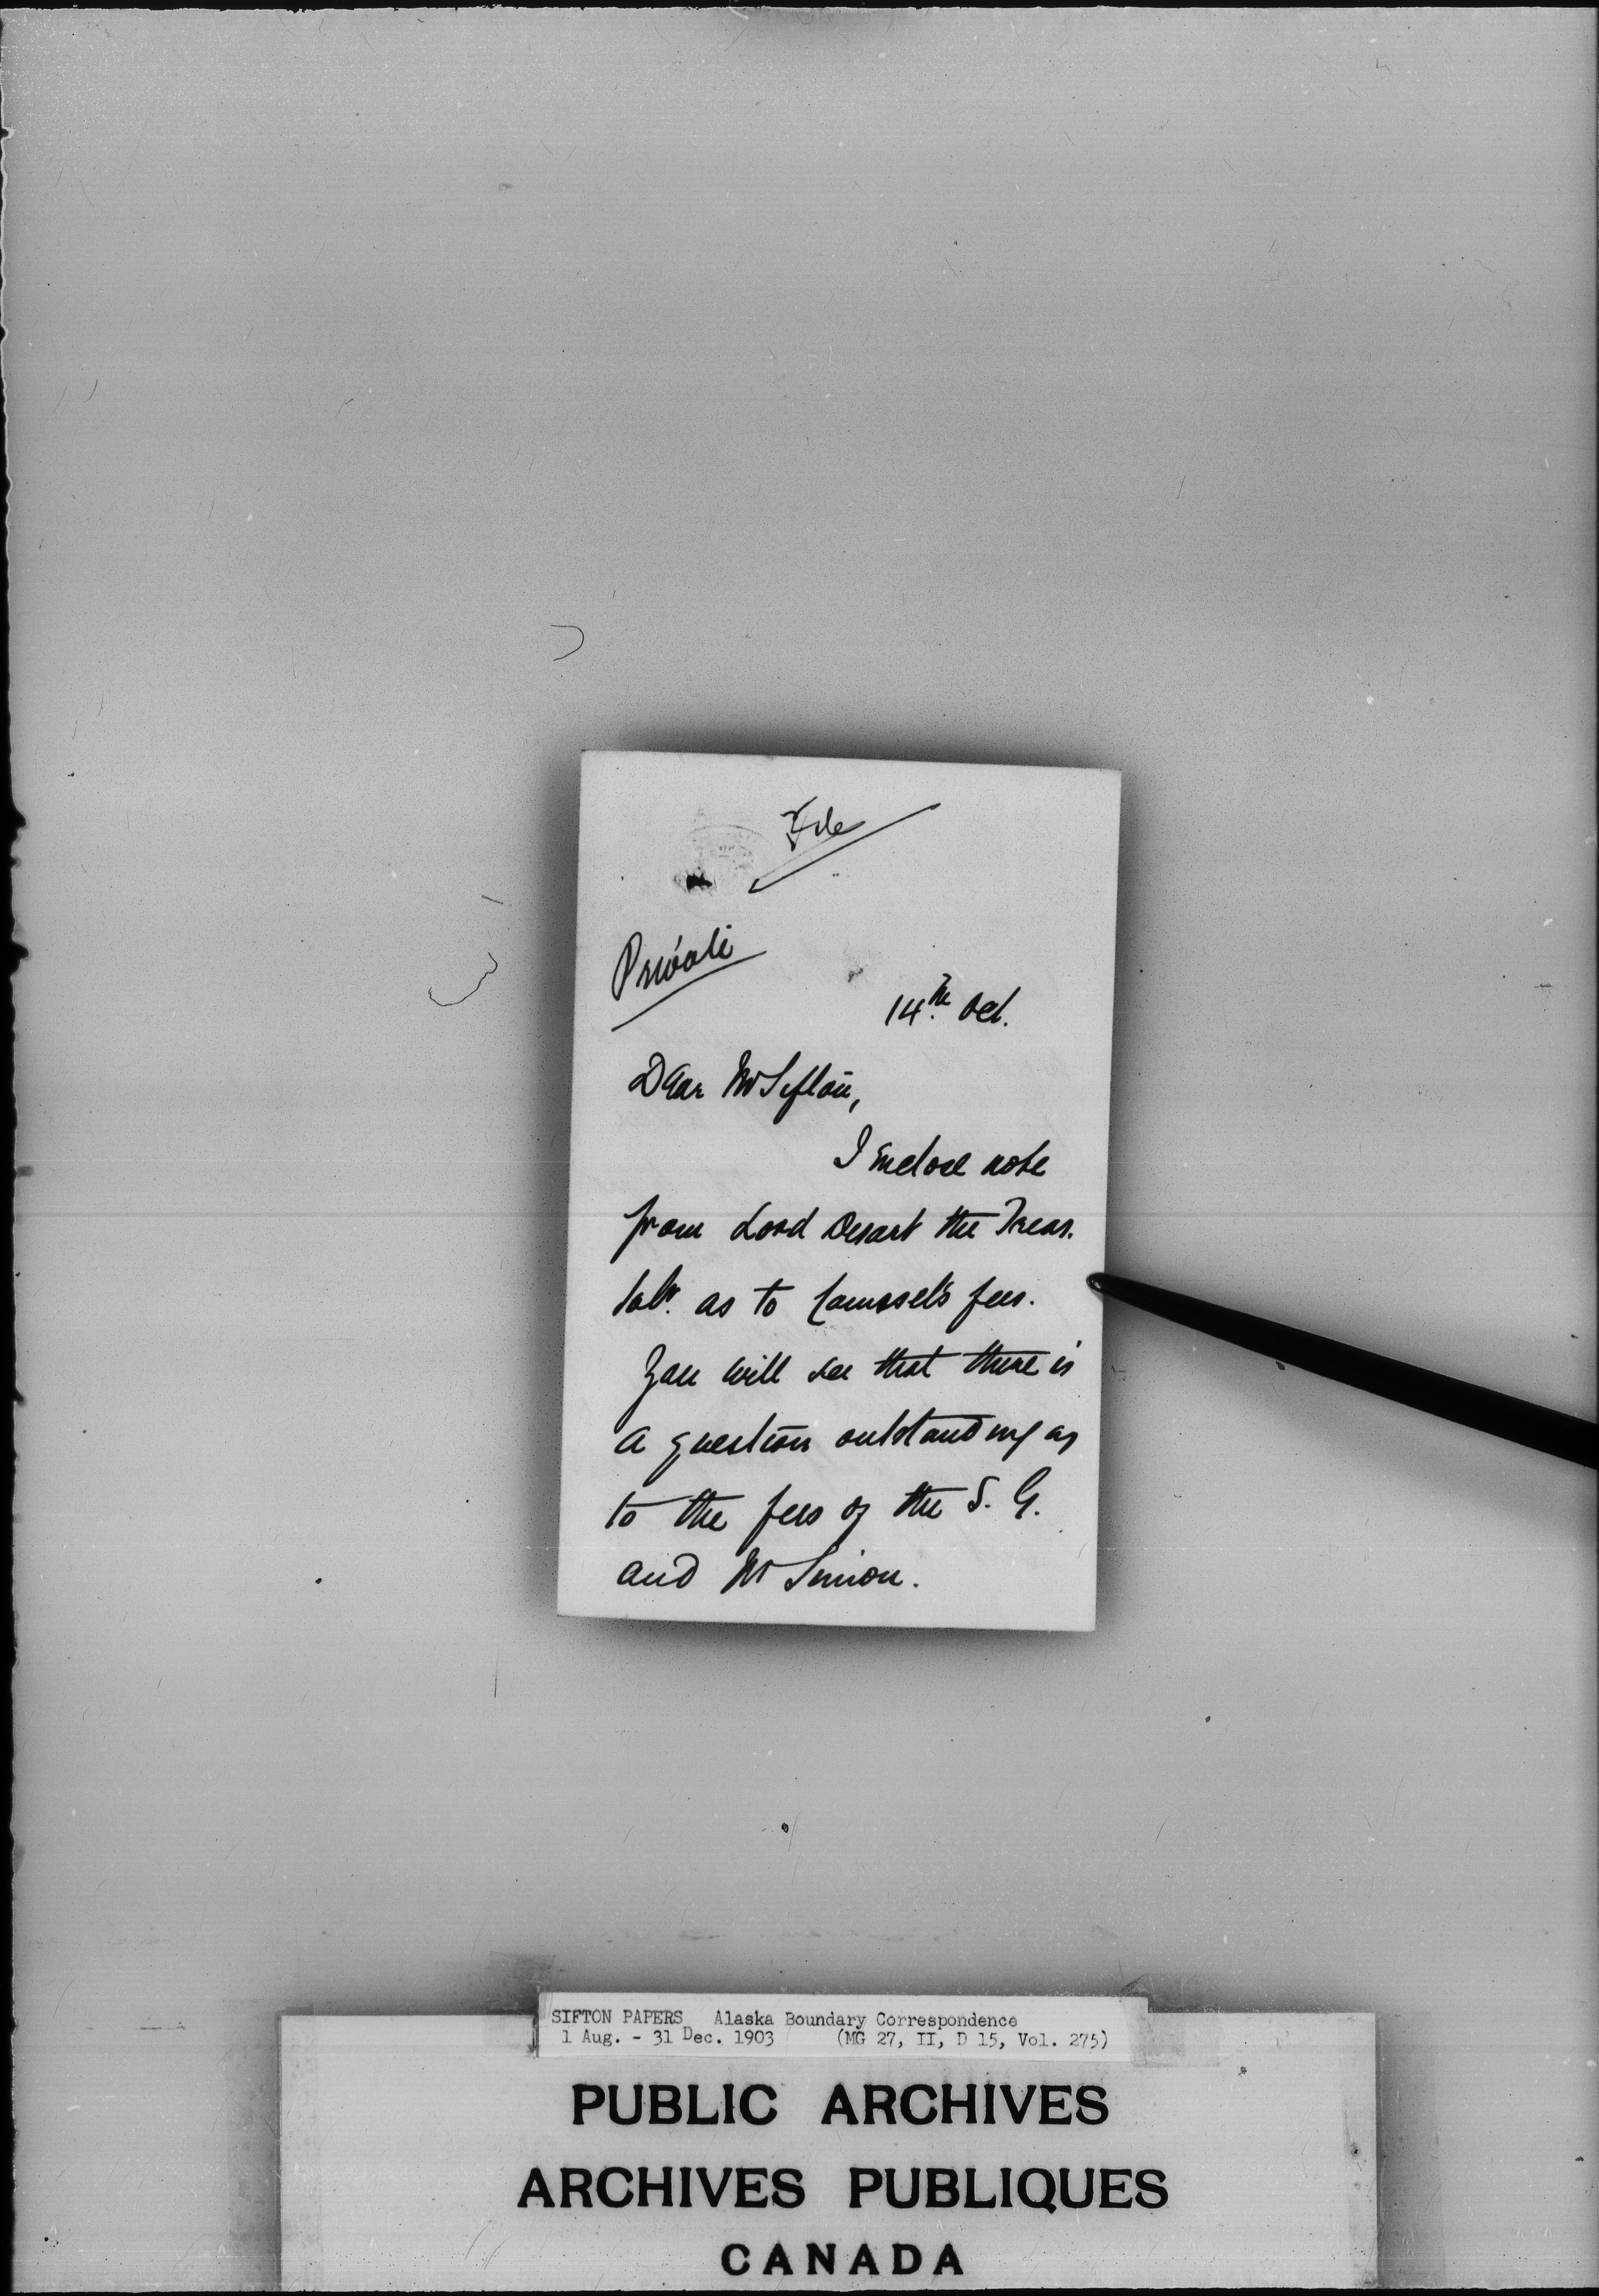 File
Private
14th. Oct.
Dear Mr Sifton,
I enclose note
from Lord Desart the Treas.
Solr. as to Counsel's fees.
You will see that there is
a question outstanding as
to the fees of the S. G.
and Mr Simon.
SIFTON PAPERS Alaska Boundary Correspondence
1 Aug. - 31 Dec. 1903 (MG 27, II, D 15, Vol. 275)
PUBLIC ARCHIVES
ARCHIVES PUBLIQUES
CANADA